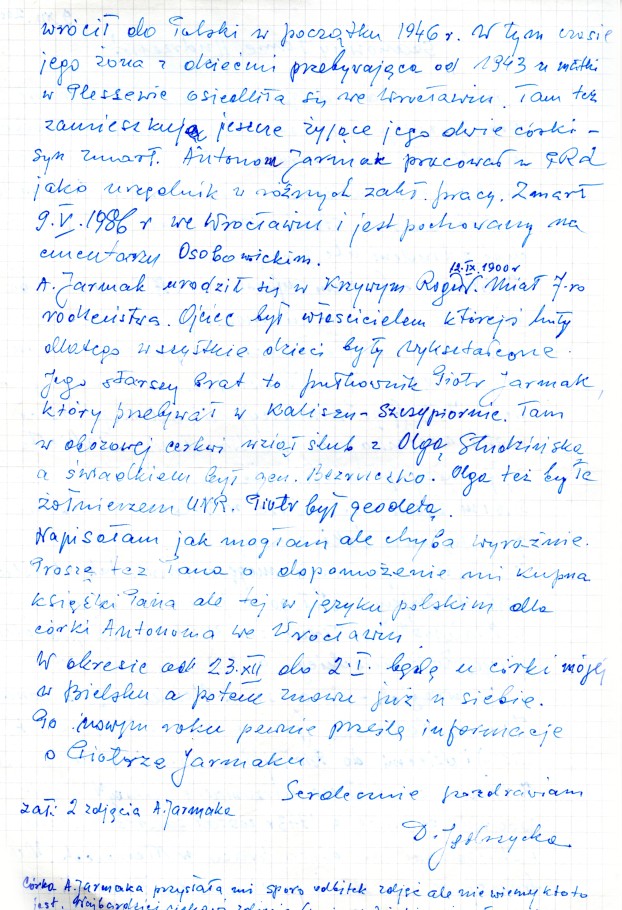 wrócił do Polski w początku 1946 r. W tym czasie
jego żona z dziećmi przebywająca od 1943 u matki
w Pleszewie osiedliła się we Wrocławiu. Tam też
zamieszkują jeszcze żyjące jego dwie córki –
syn zmarł. Antonom Jarmak pracował w PRL
jako urzędnik w różnych zakł. pracy. Zmarł
9.V.1986 r we Wrocławiu i jest pochowany na
cmentarzu Osobowickim.
12.IX.1900 r
A. Jarmak urodził się w Krzywym Rogu. Miał 7-ro
rodzeństwa. Ojciec był właścicielem którejś huty
dlatego wszystkie dzieci były wykształcone.
Jego starszy brat to pułkownik Piotr Jarmak,
który przebywał w Kaliszu – Szczypiornie. Tam
w obozowej cerkwi wziął ślub z Olgą Studzińską
a świadkiem był gen. Bezruczko. Olga też była
żołnierzem UNR. Piotr był geodetą.
Napisałam jak mogłam ale chyba wyraźnie.
Proszę też Pana o dopomożenie mi kupna
książki Pana ale tej w języku polskim dla
córki Antonoma we Wrocławiu
W okresie od 23.XII do 2.I. będę u córki mojej
w Bielsku a potem znowu już u siebie.
Po nowym roku pewnie prześlę informacje
o Piotrze Jarmaku.
Serdecznie pozdrawiam
zał: 2 zdjęcia A. Jarmaka
D. Jędrzycka
Córka A. Jarmaka przysłała mi sporo odbitek zdjęć ale nie wiemy kto to
jest. Najbardziej